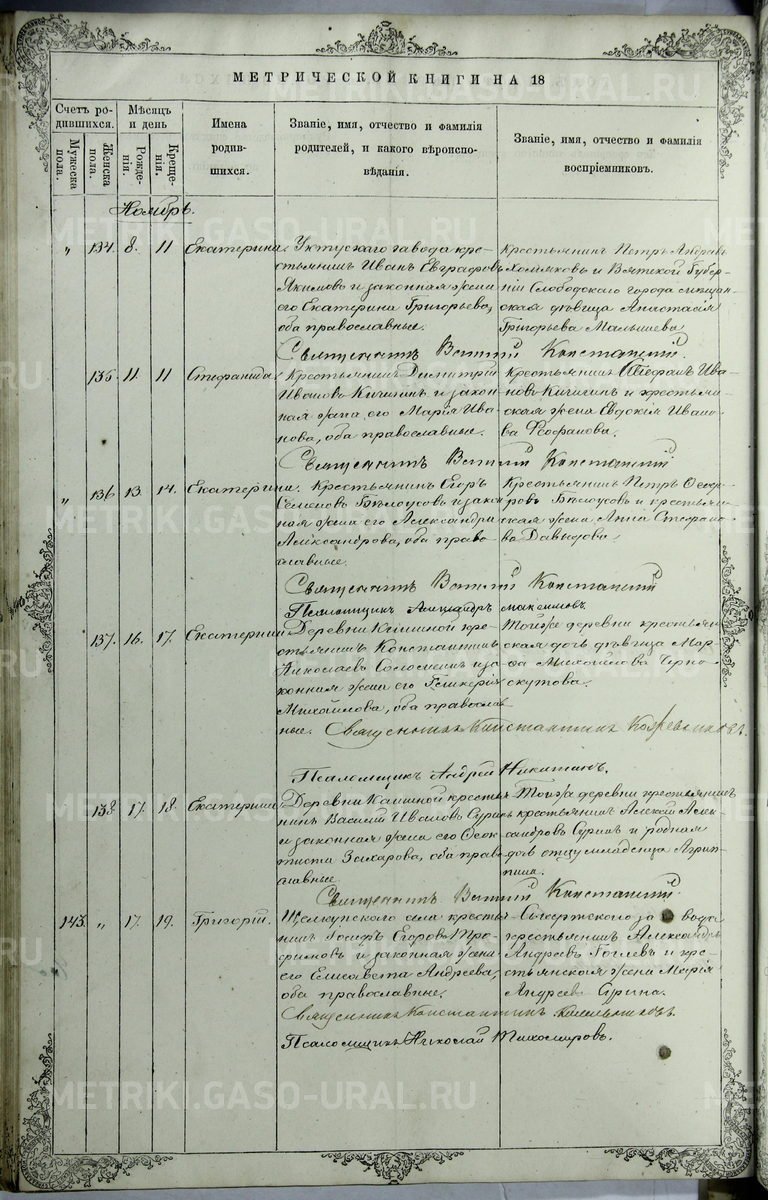 МЕТРИЧЕСКОЙ КНИГИ НА 18
Счетъ родившихся.
Мужеска пола.
Женска пола.
Мѣсяцъ и день
Рожденія.
Крещенія.
Имена родившихся.
Званіе, имя, отчество и фамилія родителей, и какого вѣроисповѣданія.
Званіе, имя, отчество и фамилія воспріемниковъ.
Ноябрь.
" 134. 8. 11 Екатерина.
Уктускаго завода кре-
стьянинъ Иванъ Евграфовъ
Якимовъ и законная жена
его Екатерина Григорьева,
оба православные.
Крестьянинъ Петръ Андреевъ
Холмяковъ и Вятской Губер-
ніи Слободскаго города мещан-
ская дѣвица Анастасія
Григорьева Малышева
Священникъ Конст
135. 11. 11 Стефанида.
Крестьянинъ Димитрій
Ивановъ Кичигинъ и закон-
ная жена его Марія Ива-
нова, оба православные.
Крестьянинъ Стефанъ Ива-
новъ Кичигинъ и крестьян-
ская жена Евдокія Ивано-
ва Феофанова.
Священникъ
" 136 13. 14. Екатерина.
Крестьянинъ Егоръ
Семеновъ Бѣлоусовъ и закон-
ная жена его Александра
Александрова, оба право-
славные.
Крестьянинъ Петръ Ѳедо-
ровъ Бѣлоусовъ и крестьян-
ская жена Анна Стефано-
ва Давыдова.
Священникъ
Псаломщикъ Александръ Максимовъ.
137. 16. 17. Екатерина
Деревни кре-
стьянинъ Константинъ
Николаевъ и за-
конная жена его Гликерія
Михайлова, оба православ-
ные.
Той же деревни крестьян-
ская дочь дѣвица Мар-
фа Михайлова Черно-
скутова.
Священникъ Константинъ Кожевниковъ.
Псаломщикъ Андрей Никитинъ.
138. 17. 18. Екатерина
Деревни крестья-
нинъ Василій Ивановъ Суринъ
и законная жена его Ѳеок-
тиста Захарова, оба право-
славные
Той же деревни крестьянинъ
крестьянинъ Алексѣй Алек-
сандровъ Суринъ и родная
дочь отцу младенца Агрип-
пина.
Священникъ
143. " 17. 19. Григорій.
Щелкунскаго села крестья-
нинъ Іосифъ Егоровъ Тро-
фимовъ и законная жена
его Елисавета Андреева,
оба православные.
Сысертскаго завода
крестьянинъ Александръ
Андреевъ и кре-
стьянская жена Марія
Андреева Сурина.
Священникъ Константинъ
Псаломщикъ Николай Тихомировъ.
METRIKI.GASO-URAL.RU